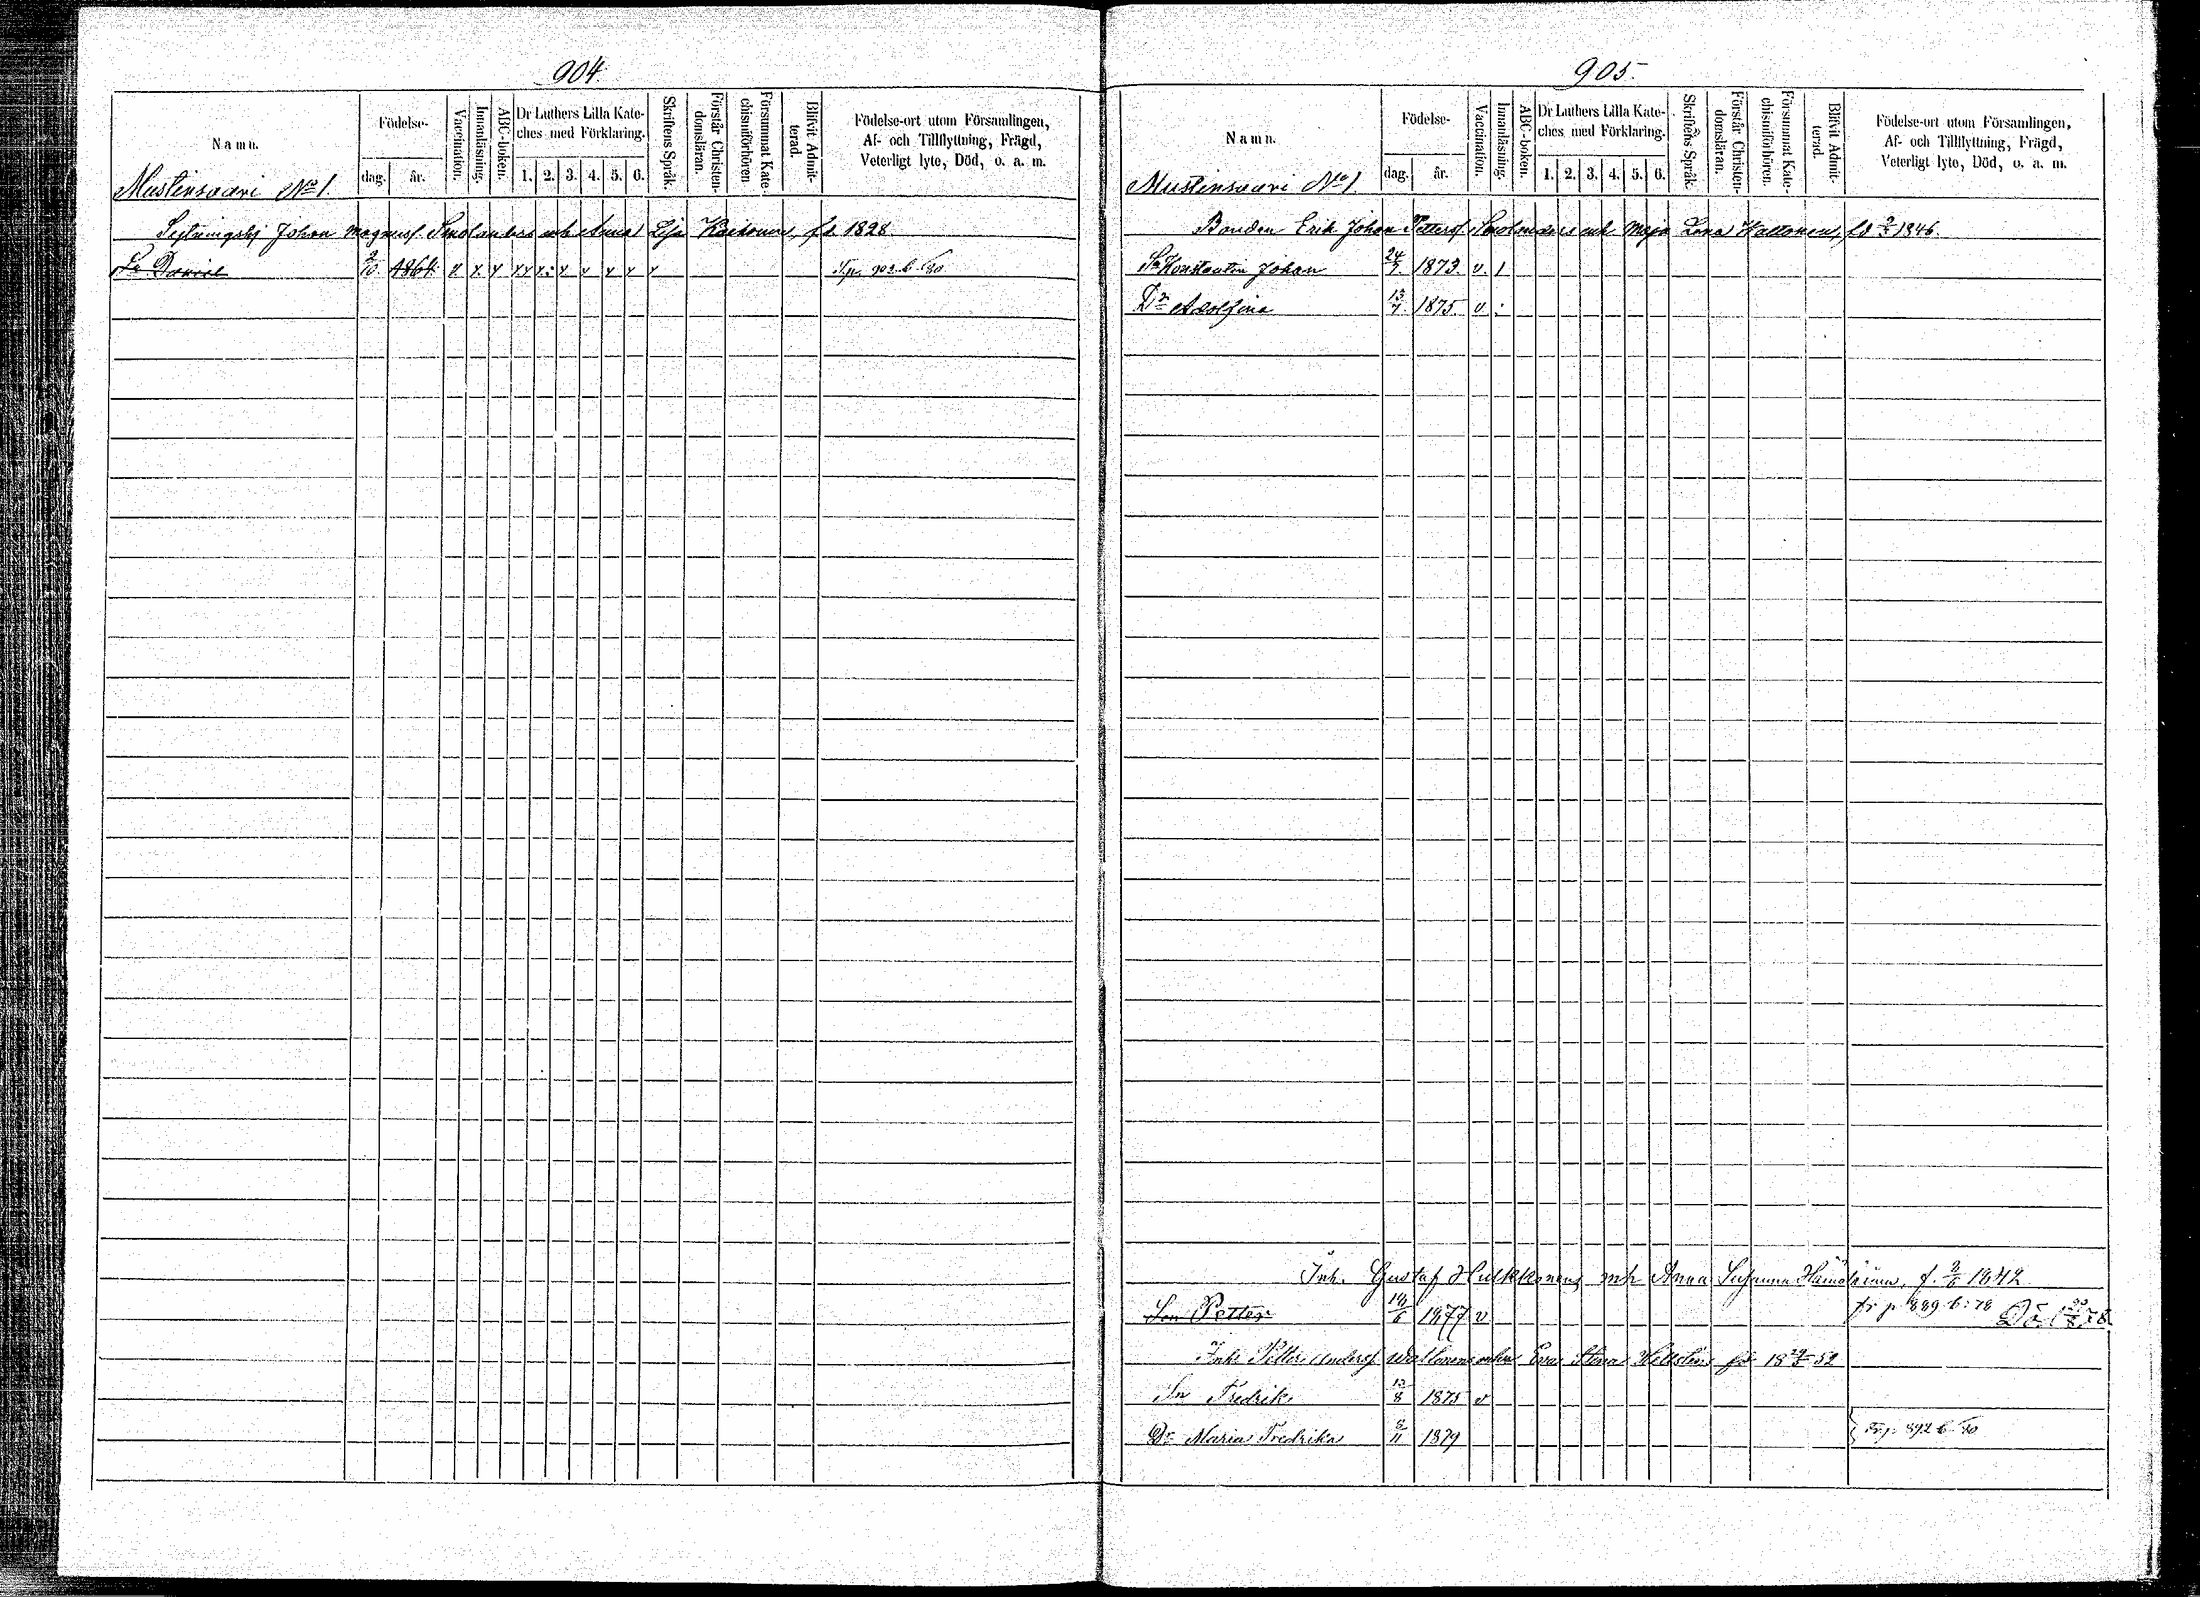 904
Namn.
Födelse-
dag.
år.
Vaccination.
Innanläsning.
ABC-boken.
Dr Luthers Lilla Kate-
ches med Förklaring.
1. 2. 3. 4. 5. 6.
Skriftens Språk.
Förstår Christen-
domsläran.
Försummat Kate-
chismiförhören
Blifvit Admit-
terad.
Födelse-ort utom Församlingen,
Af- och Tillflyttning, Frägd,
Veterligt lyte, Död, o. a. m.
Mustinsaari No 1.
Johan Magnusf. Smolanders enk Anna Lisa fd. 1828
Sn Daniel 2/10 1864 Trp. 903. b. 80
905.
Namn.
Födelse-
dag.
år.
Vaccination.
Innanläsning.
ABC-boken.
Dr Luthers Lilla Kate-
ches med Förklaring.
1. 2. 3. 4. 5. 6.
Skriftens Språk.
Förstår Christen-
domsläran.
Försummat Kate-
chismiförhören.
Blifvit Admit-
terad.
Födelse-ort utom Församlingen,
Af- och Tillflyttning, Frägd,
Veterligt lyte, Död, o. a. m.
Mustinsaari No 1.
Bonden Erik Johan Pettersf. Smolanders enk Maja Lena Hattonen, fd 1846.
Sn Konstantin Johan 24/7. 1873. v. 1
Dr Adolfina 13/7. 1875. v. :
Inh. Gustaf Hulkkonens mh Anna Susanna f. 2/6 1842
Son Petter 1877 v tr p 889. b: 78 Död
Inh. Petter Andersf Wallonens enka Eva Stina Hellsten fd 18 52
Sn Fredrik 12/8 1875 v
Dr Maria Fredrika 8/11 1879 Trp. 892 b. 80